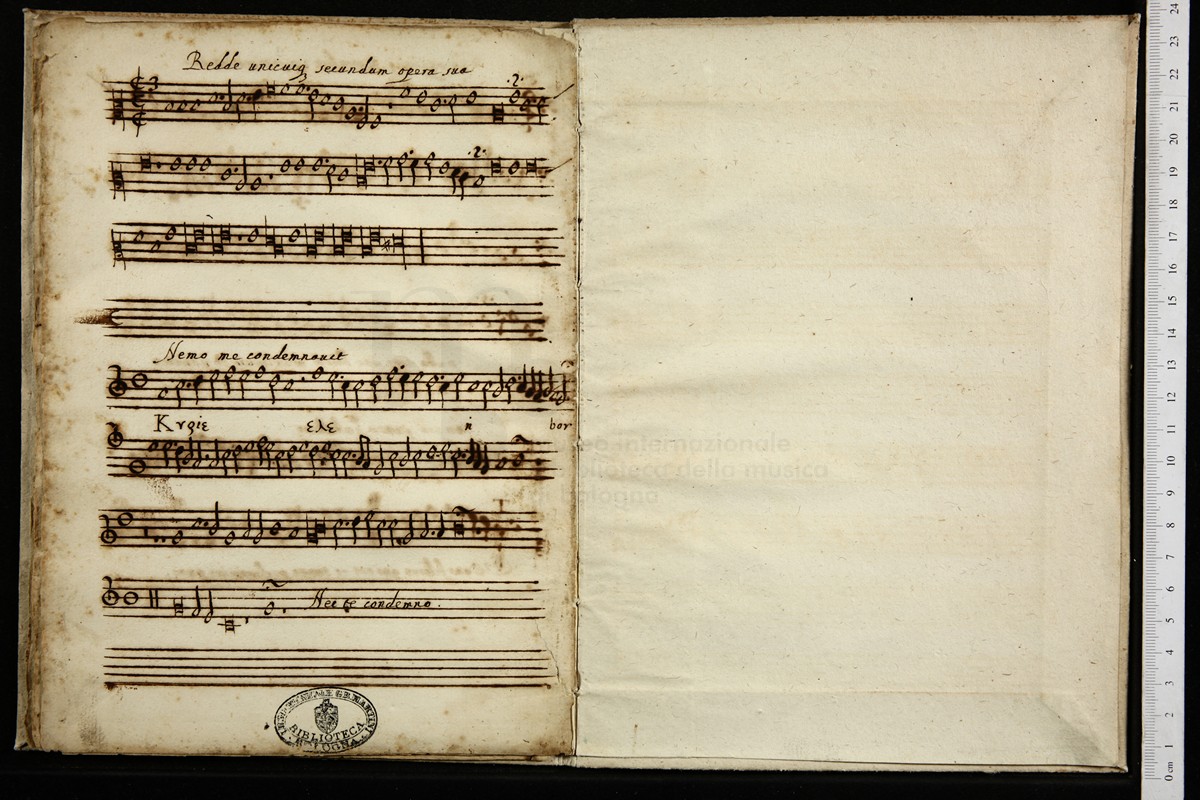 Redde unicuiq secundum opera sua
.2.
.2.
Nemo me condemnavit
Kygie ελε n bor
Nec te condemno.
museo internazionale
biblioteca della musica
di bologna
BIBLIOTECA
BOLOGNA
24
23
22
21
20
19
18
17
16
15
14
13
12
11
10
9
8
7
6
5
4
3
2
1
0 cm